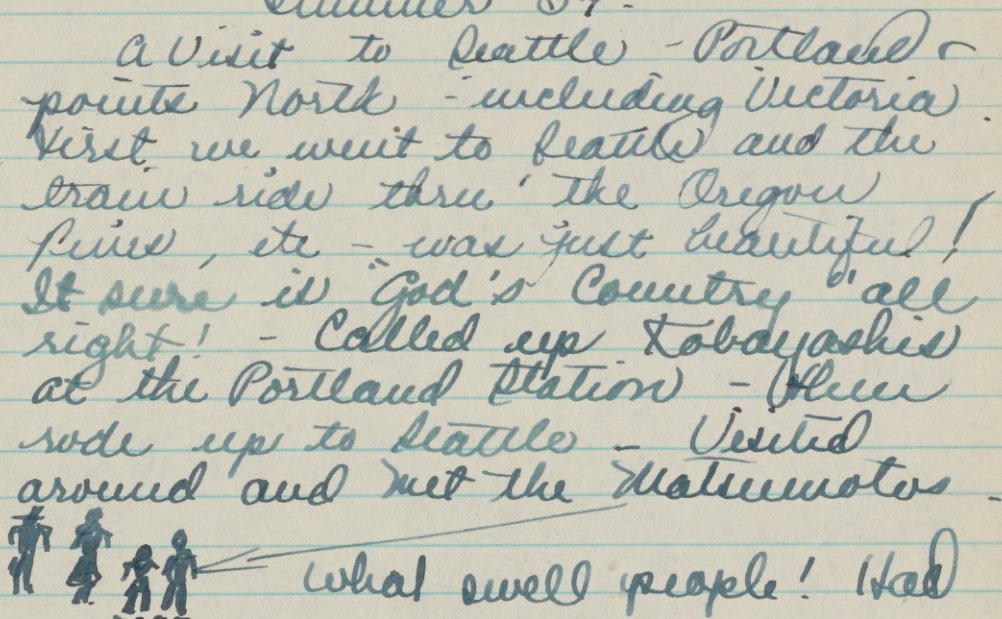 Summer 39.
A Visit to Seattle - Portland &
points North - including Victoria.
First we went to Seattle and the
train ride thru' the Oregon
Pines, etc - was just beautiful!
It sure is "God's Country" all
right! - Called up Kobayashis
at the Portland Station - then
rode up to Seattle - Visited
around and met the Matsumotos -
What swell people! Had